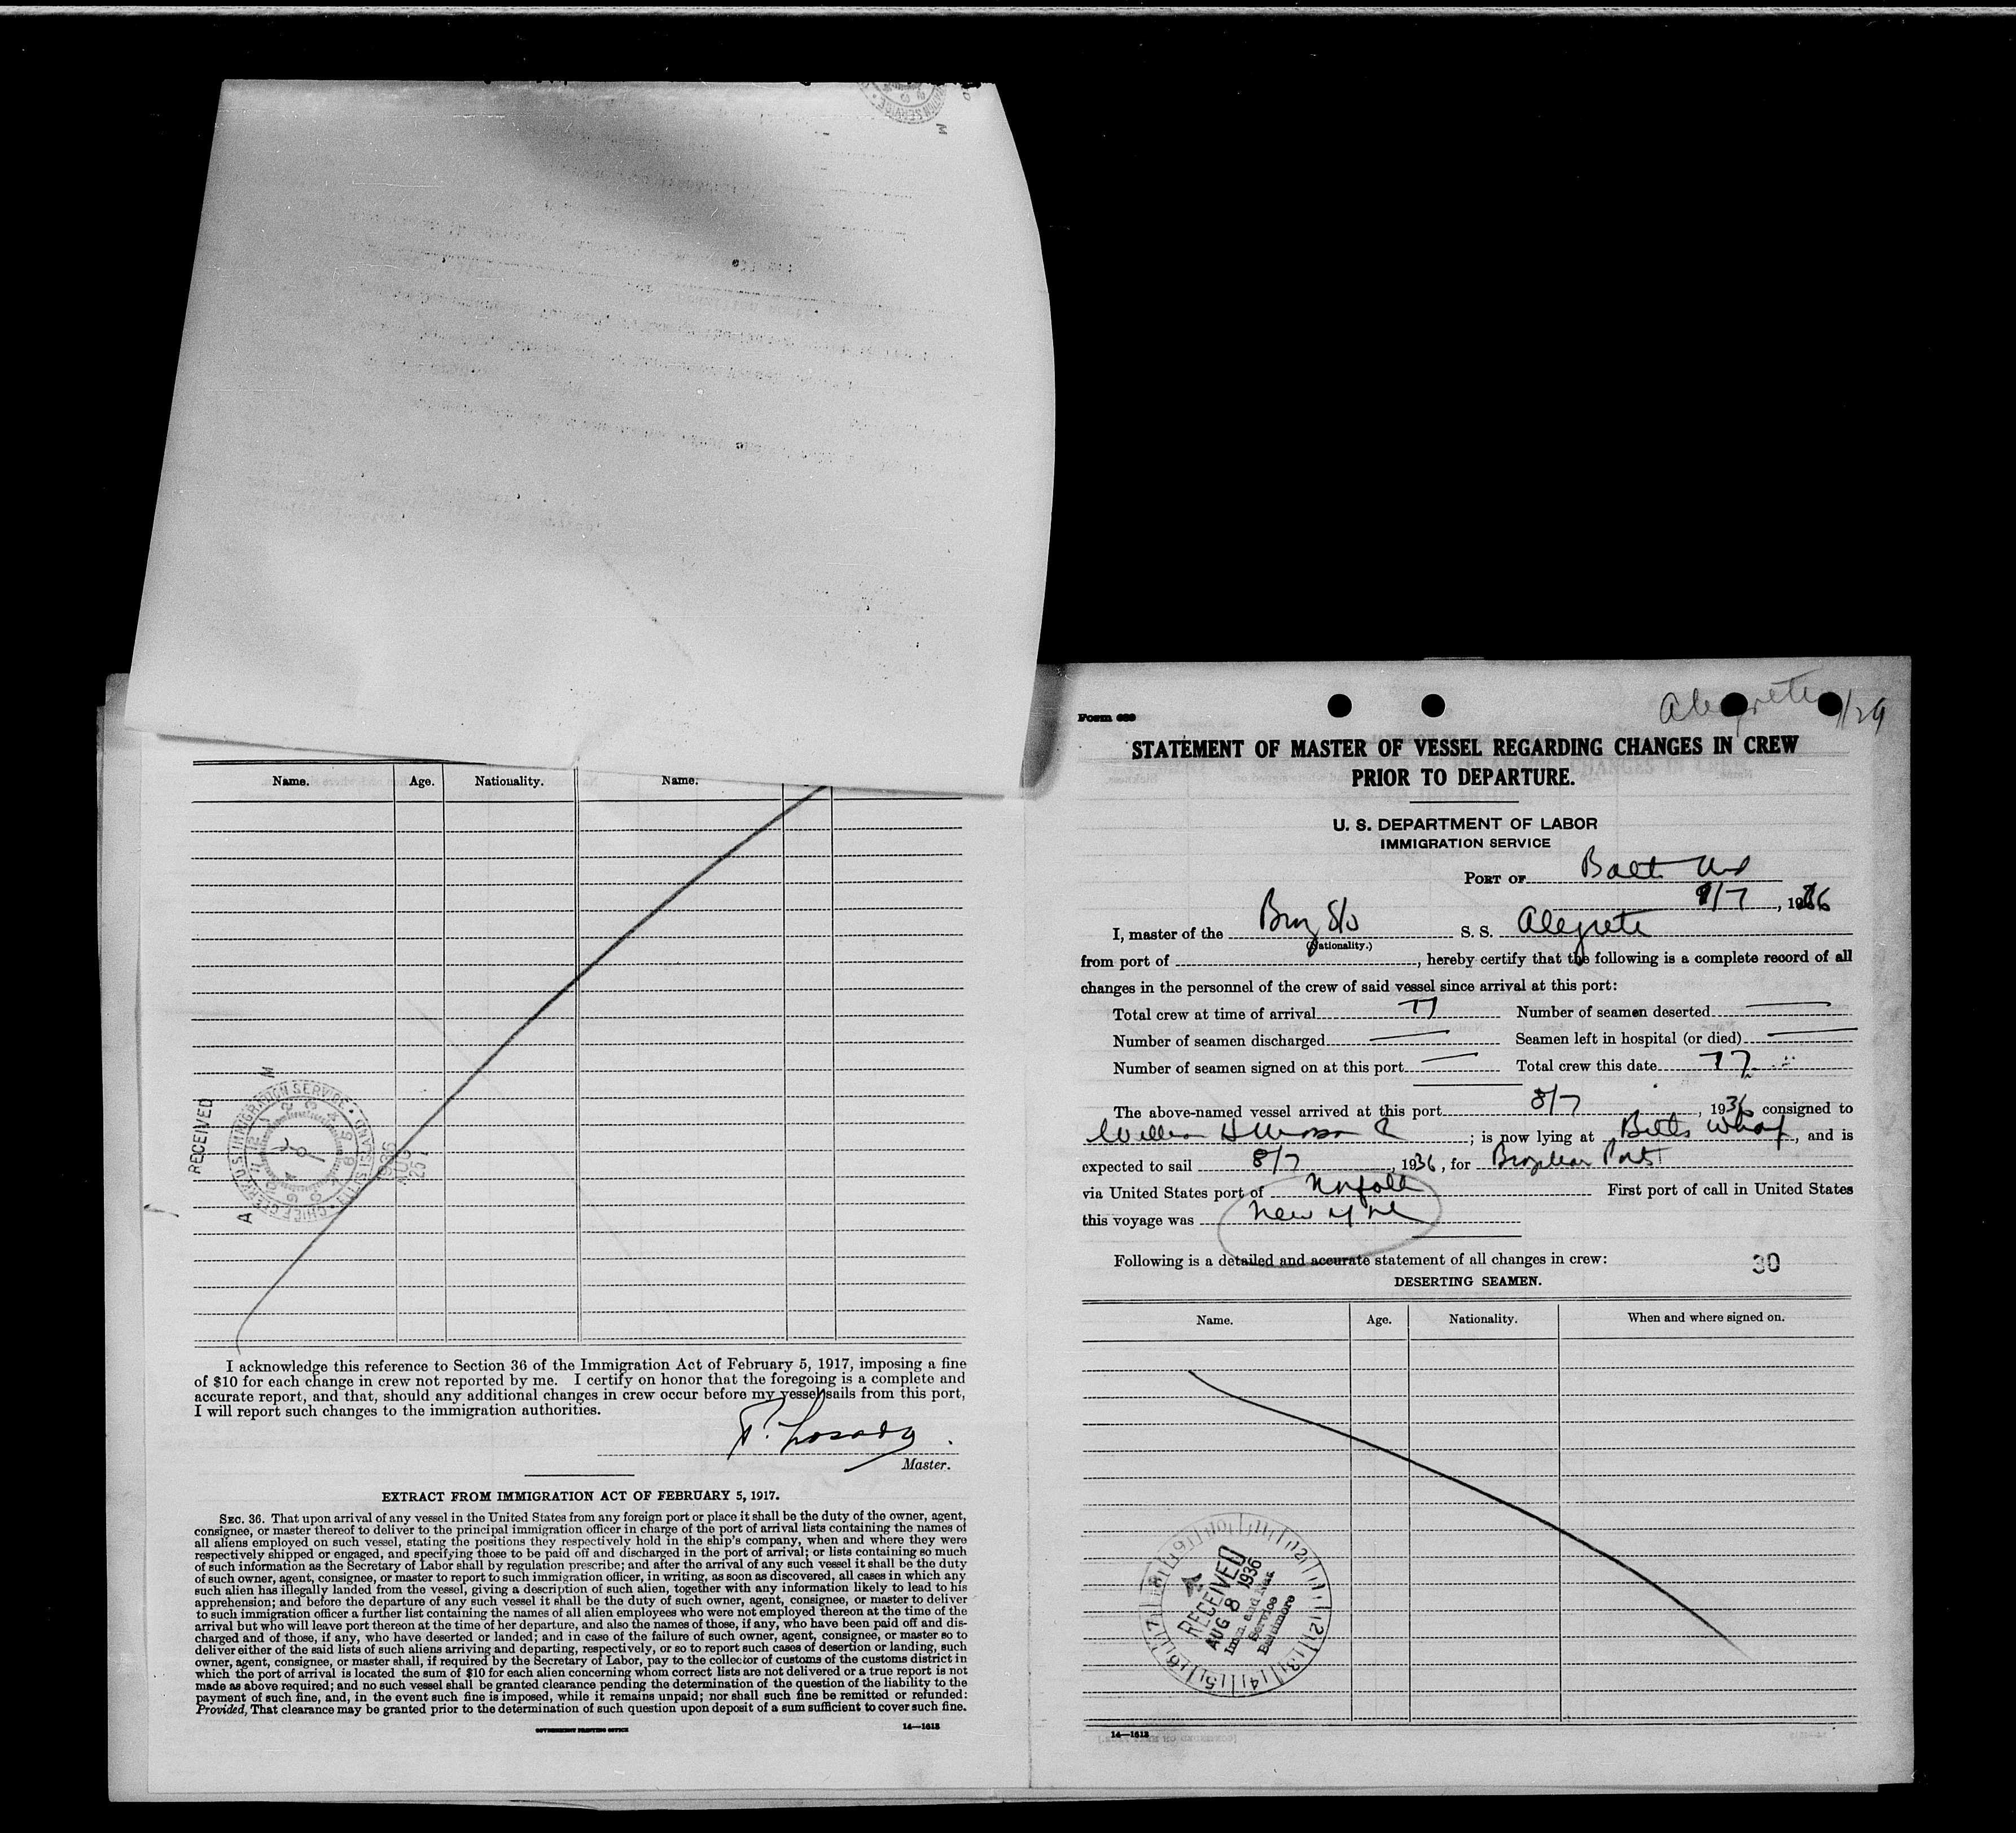 Name. Age. Nationality. Name.
RECEIVED
U.S. IMMIGRATION SERVICE
A M
1936
AUG
25
I acknowledge this reference to Section 36 of the Immigration Act of February 5, 1917, imposing a fine
of $10 for each change in crew not reported by me. I certify on honor that the foregoing is a complete and
accurate report, and that, should any additional changes in crew occur before my vessel sails from this port,
I will report such changes to the immigration authorities.
P. Losada
Master.
EXTRACT FROM IMMIGRATION ACT OF FEBRUARY 5, 1917.
SEC. 36. That upon arrival of any vessel in the United States from any foreign port or place it shall be the duty of the owner, agent,
consignee, or master thereof to deliver to the principal immigration officer in charge of the port of arrival lists containing the names of
all aliens employed on such vessel, stating the positions they respectively hold in the ship's company, when and where they were
respectively shipped or engaged, and specifying those to be paid off and discharged in the port of arrival; or lists containing so much
of such information as the Secretary of Labor shall by regulation prescribe; and after the arrival of any such vessel it shall be the duty
of such owner, agent, consignee, or master to report to such immigration officer, in writing, as soon as discovered, all cases in which any
such alien has illegally landed from the vessel, giving a description of such alien, together with any information likely to lead to his
apprehension; and before the departure of any such vessel it shall be the duty of such owner, agent, consignee, or master to deliver
to such immigration officer a further list containing the names of all alien employees who were not employed thereon at the time of the
arrival but who will leave port thereon at the time of her departure, and also the names of those, if any, who have been paid off and dis-
charged and of those, if any, who have deserted or landed; and in case of the failure of such owner, agent, consignee, or master so to
deliver either of the said lists of such aliens arriving and departing, respectively, or so to report such cases of desertion or landing, such
owner, agent, consignee, or master shall, if required by the Secretary of Labor, pay to the collector of customs of the customs district in
which the port of arrival is located the sum of $10 for each alien concerning whom correct lists are not delivered or a true report is not
made as above required; and no such vessel shall be granted clearance pending the determination of the question of the liability to the
payment of such fine, and, in the event such fine is imposed, while it remains unpaid; nor shall such fine be remitted or refunded:
Provided, That clearance may be granted prior to the determination of such question upon deposit of a sum sufficient to cover such fine.
GOVERNMENT PRINTING OFFICE 14—1613
Alegrete
Form 689
STATEMENT OF MASTER OF VESSEL REGARDING CHANGES IN CREW
PRIOR TO DEPARTURE.
U. S. DEPARTMENT OF LABOR
IMMIGRATION SERVICE
PORT OF Balt Md
8/7, 1936
I, master of the Braz S/S S. S. Alegrete
(Nationality.)
from port of , hereby certify that the following is a complete record of all
changes in the personnel of the crew of said vessel since arrival at this port:
Total crew at time of arrival 77 Number of seamen deserted —
Number of seamen discharged — Seamen left in hospital (or died) —
Number of seamen signed on at this port — Total crew this date 77
The above-named vessel arrived at this port 8/7, 1936 consigned to
William H ; is now lying at Wharf, and is
expected to sail 8/7, 1936, for Brazilian Ports
via United States port of Norfolk First port of call in United States
this voyage was New York
Following is a detailed and accurate statement of all changes in crew: 30
DESERTING SEAMEN.
Name. Age. Nationality. When and where signed on.
RECEIVED
AUG 8 1936
Imm. and Nat.
Service
Baltimore
14—1613